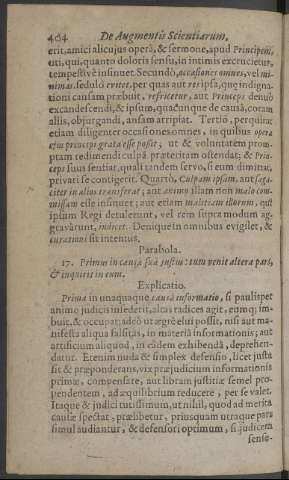 464 De Augmentis Scientiarum,
erit, amici alicujus operâ, & sermone, apud Principem,
uti, qui, quanto doloris sensu, in intimis excrucietur,
tempestivè insinuet. Secundò, occasiones omnes, vel mi-
nimas, sedulò evitet, per quas aut res ipsa, quæ indigna-
tioni causam præbuit, refricetur, aut Princeps denuò
excandescendi, & ipsum, quacunque de causâ, coram
aliis, objurgandi, ansam arripiat. Tertiò, perquirat
etiam diligenter occasiones omnes, in quibus opera
ejus principi grata esse possit; ut & voluntatem prom-
ptam redimendi culpâ præteritam ostendat; & Prin-
ceps suus sentiat, quali tandem servo, si eum dimittat,
privati se contigerit. Quartò, Culpam ipsam, aut saga-
citer in alios transferat; aut animo illam non malo com-
missam esse insinuet; aut etiam malitiam illorum, qui
ipsum Regi detulerunt, vel rem supra modum ag-
gravârunt, indicet. Denique in omnibus evigilet, &
curationi sit intentus.
Parabola.
17. Primus in causâ suâ justus: tum venit altera pars,
& inquirit in eum.
Explicatio.
Prima in unaquaque causâ informatio, si paulisper
animo judicis insederit, altas radices agit, eumq; im-
buit, & occupat; adeò ut ægrè elui possit, nisi aut ma-
nifesta aliqua falsitas, in materiâ informationis; aut
artificium aliquod, in eâdem exhibendâ, deprehen-
datur. Etenim nuda & simplex defensio, licet justa
sit & præponderans, vix præjudicium informationis
primæ, compensare, aut libram justitiæ semel pro-
pendentem, ad æquilibrium reducere, per se valet.
Itaque & judici tutissimum, ut nihil, quod ad merita
causæ spectat, prælibetur, priusquam utraque pars
simul audiantur; & defensori optimum, si judicem
sense-